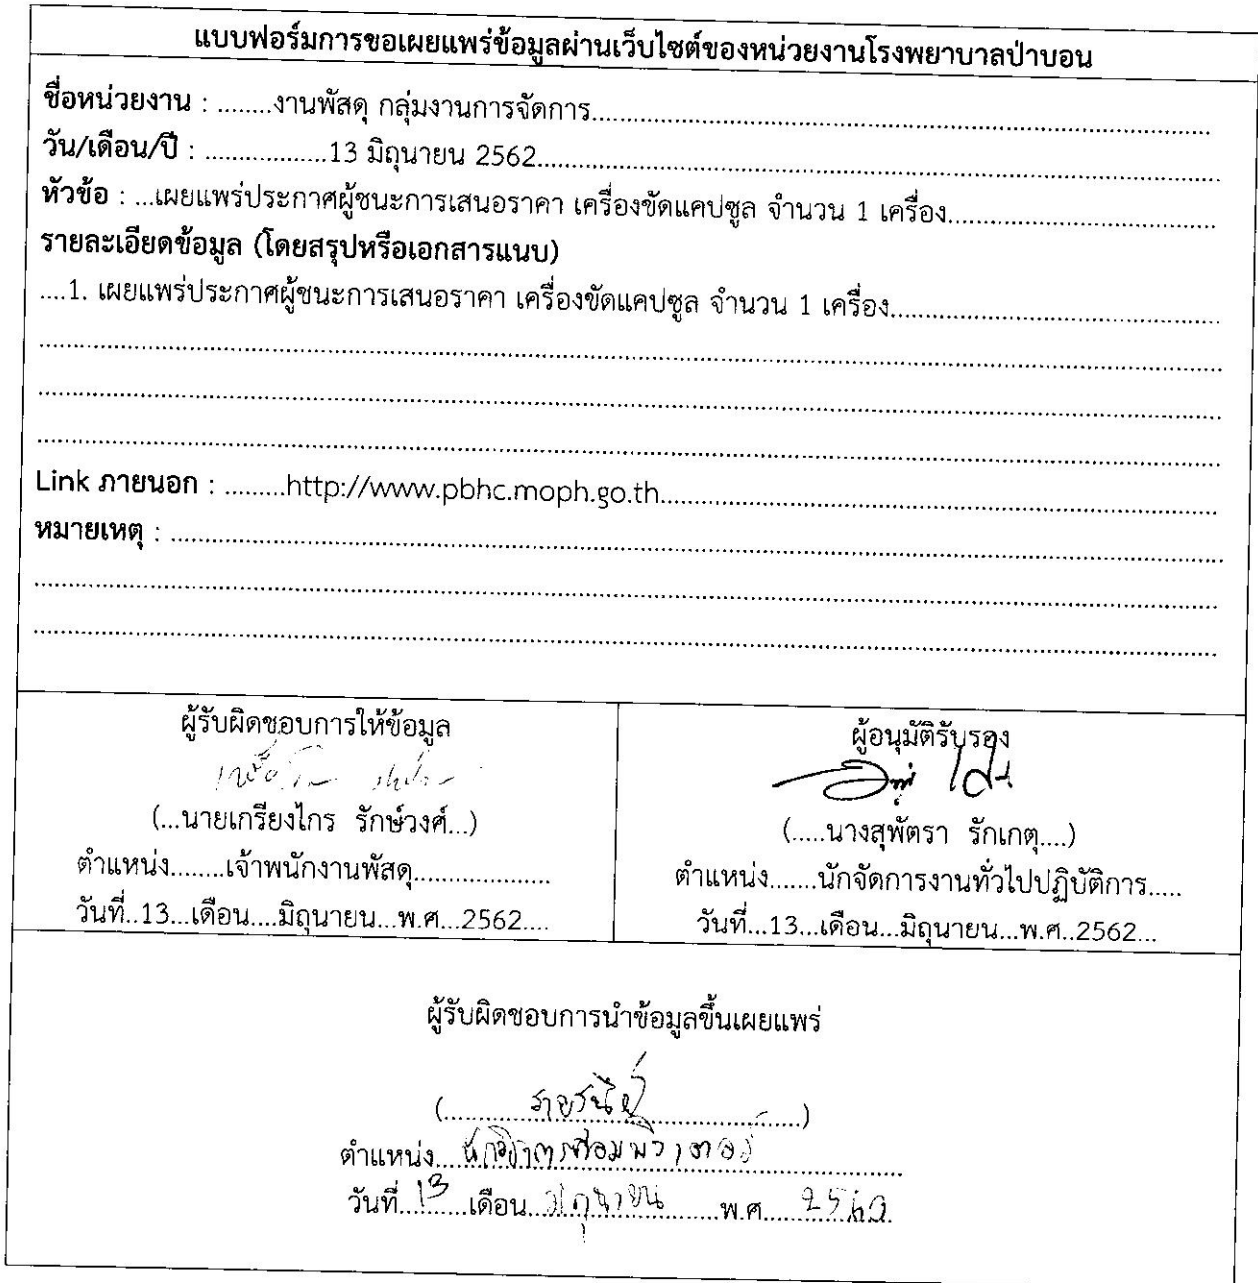 แบบฟอร์มการขอเผยแพร่ข้อมูลผ่านเว็บไซต์ของหน่วยงานโรงพยาบาลป่าบอน
ชื่อหน่วยงาน : ........งานพัสดุ กลุ่มงานการจัดการ........
วัน/เดือน/ปี : .................13 มิถุนายน 2562........
หัวข้อ : ...เผยแพร่ประกาศผู้ชนะการเสนอราคา เครื่องขัดแคปซูล จำนวน 1 เครื่อง........
รายละเอียดข้อมูล (โดยสรุปหรือเอกสารแนบ)
....1. เผยแพร่ประกาศผู้ชนะการเสนอราคา เครื่องขัดแคปซูล จำนวน 1 เครื่อง........
Link ภายนอก : .........http://www.pbhc.moph.go.th........
หมายเหตุ : ........
ผู้รับผิดชอบการให้ข้อมูล
(...นายเกรียงไกร รักษ์วงศ์...)
ตำแหน่ง........เจ้าพนักงานพัสดุ....................
วันที่..13...เดือน....มิถุนายน...พ.ศ...2562....
ผู้อนุมัติรับรอง
(.....นางสุพัตรา รักเกตุ....)
ตำแหน่ง.......นักจัดการงานทั่วไปปฏิบัติการ.....
วันที่...13...เดือน...มิถุนายน...พ.ศ..2562...
ผู้รับผิดชอบการนำข้อมูลขึ้นเผยแพร่
ตำแหน่ง นักวิชาการคอมพิวเตอร์
วันที่ 13 เดือน มิถุนายน พ.ศ. 2562